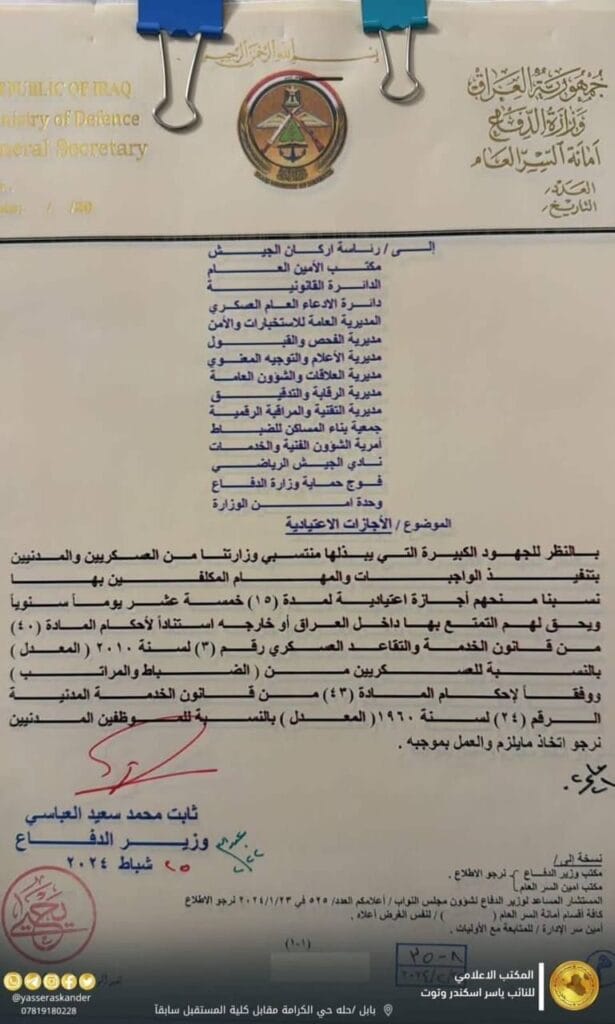 بسم الله الرحمن الرحيم
REPUBLIC OF IRAQ
Ministry of Defence
General Secretary
جمهورية العراق
وزارة الدفاع
امانة السر العام
العدد/
التاريخ/
إلى / رئاسة اركان الجيش
مكتب الأمين العام
الدائرة القانونية
دائرة الادعاء العام العسكري
المديرية العامة للاستخبارات والأمن
مديرية الفحص والقبول
مديرية الأعلام والتوجيه المعنوي
مديرية العلاقات والشؤون العامة
مديرية الرقابة والتدقيق
مديرية التقنية والمراقبة الرقمية
جمعية بناء المساكن للضباط
أمرية الشؤون الفنية والخدمات
نادي الجيش الرياضي
فوج حماية وزارة الدفاع
وحدة امن الوزارة
الموضوع / الأجازات الاعتيادية
بالنظر للجهود الكبيرة التي يبذلها منتسبي وزارتنا من العسكريين والمدنيين
بتنفيذ الواجبات والمهام المكلفين بها
نسبنا منحهم أجازة اعتيادية لمدة (١٥) خمسة عشر يوماً سنوياً
ويحق لهم التمتع بها داخل العراق أو خارجه استناداً لأحكام المادة (٤٠)
من قانون الخدمة والتقاعد العسكري رقم (٣) لسنة ٢٠١٠ ( المعدل )
بالنسبة للعسكريين من ( الضباط والمراتب )
ووفقاً لاحكام المادة (٤٣) من قانون الخدمة المدنية
الرقم (٢٤) لسنة ١٩٦٠( المعدل ) بالنسبة للموظفين المدنيين
نرجو اتخاذ مايلزم والعمل بموجبه .
ثابت محمد سعيد العباسي
وزير الدفاع
٢٥ شباط ٢٠٢٤
نسخة إلى/
مكتب وزير الدفاع } نرجو الاطلاع .
مكتب امين السر العام
المستشار المساعد لوزير الدفاع لشؤون مجلس النواب / أعلامكم العدد/ ٥٢٥ في ٢٠٢٤/١/٢٣ نرجو الاطلاع
كافة أقسام أمانة السر العام ( ) / لنفس الغرض أعلاه .
أمين سر الإدارة / للمتابعة مع الأوليات .
(١-١)
٣٥٠٨
المكتب الاعلامي
للنائب ياسر اسكندر وتوت
@yasseraskander
07819180228
بابل /حله حي الكرامة مقابل كلية المستقبل سابقآ